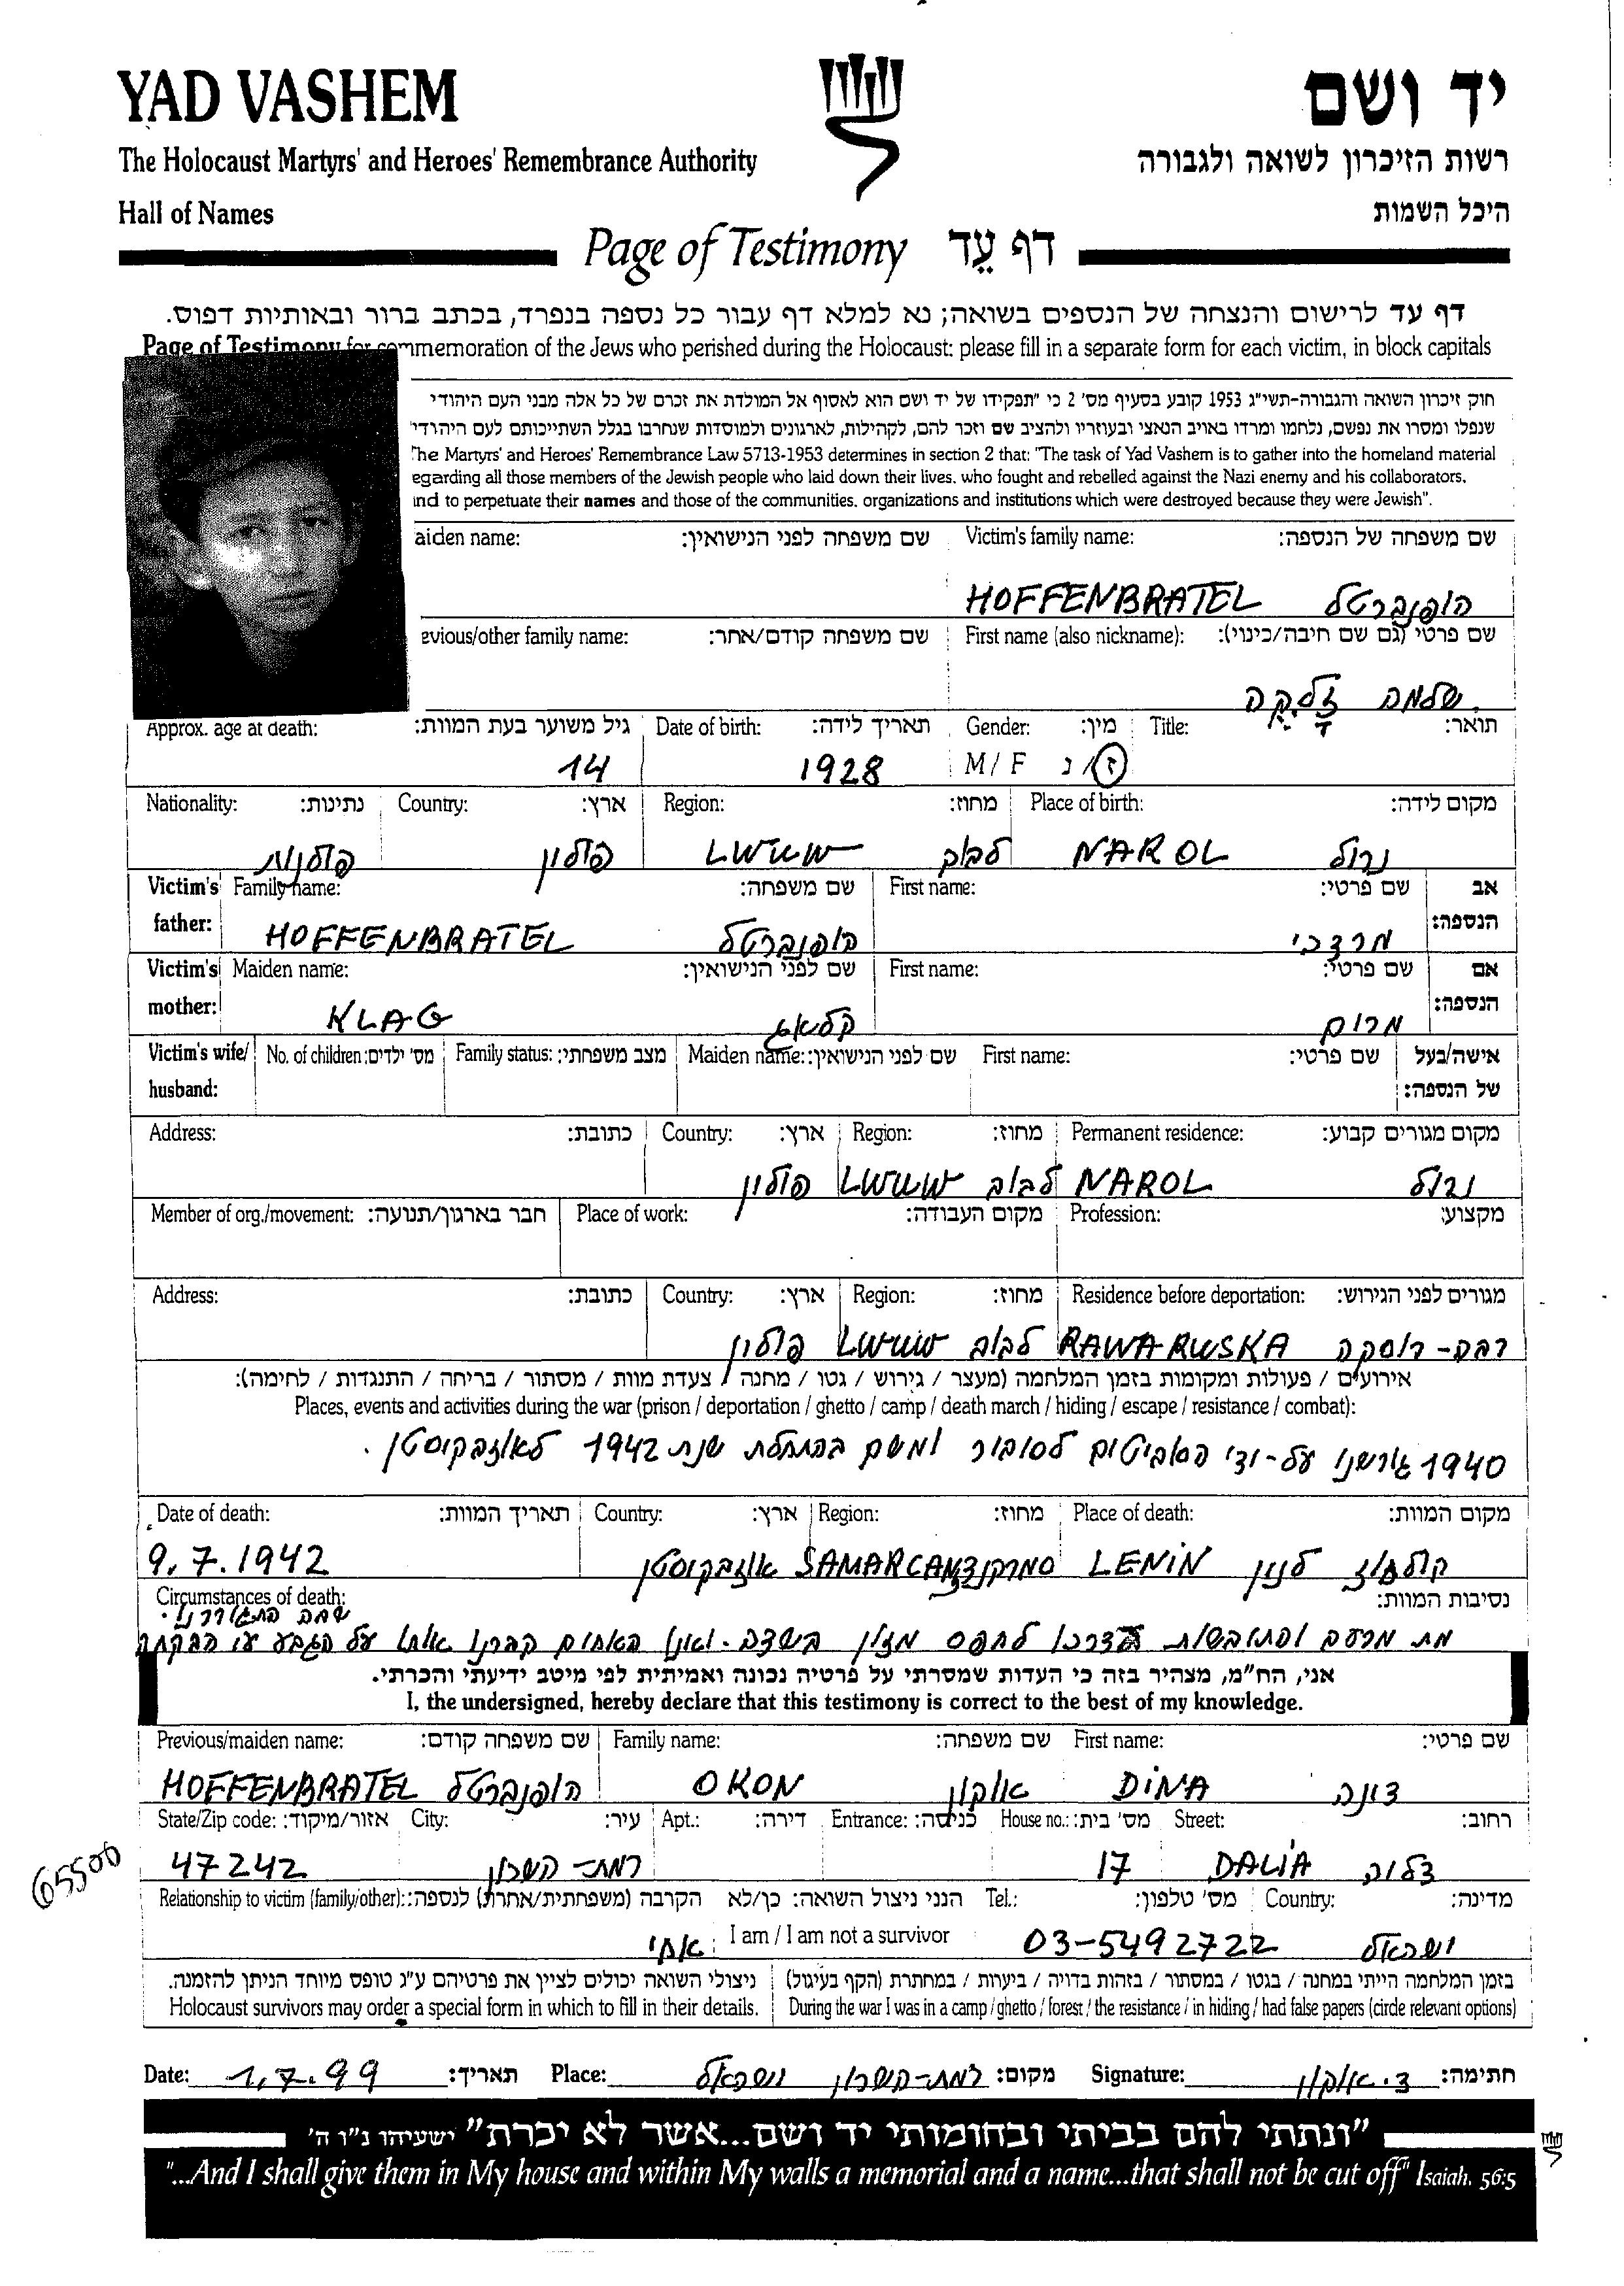 YAD VASHEM
יד ושם
The Holocaust Martyrs' and Heroes' Remembrance Authority
רשות הזיכרון לשואה ולגבורה
Hall of Names
היכל השמות
Page of Testimony דף עֵד
דף עד לרישום והנצחה של הנספים בשואה; נא למלא דף עבור כל נספה בנפרד, בכתב ברור ובאותיות דפוס.
Page of Testimony for commemoration of the Jews who perished during the Holocaust: please fill in a separate form for each victim, in block capitals
חוק זיכרון השואה והגבורה-תשי"ג 1953 קובע בסעיף מס' 2 כי "תפקידו של יד ושם הוא לאסוף אל המולדת את זכרם של כל אלה מבני העם היהודי
שנפלו ומסרו את נפשם, נלחמו ומרדו באויב הנאצי ובעוזריו ולהציב שם וזכר להם, לקהילות, לארגונים ולמוסדות שנחרבו בגלל השתייכותם לעם היהודי"
The Martyrs' and Heroes' Remembrance Law 5713-1953 determines in section 2 that: "The task of Yad Vashem is to gather into the homeland material
egarding all those members of the Jewish people who laid down their lives, who fought and rebelled against the Nazi enemy and his collaborators,
and to perpetuate their names and those of the communities, organizations and institutions which were destroyed because they were Jewish".
aiden name: שם משפחה לפני הנישואין: Victim's family name: שם משפחה של הנספה:
HOFFENBRATEL הופנברטל
evious/other family name: שם משפחה קודם/אחר: First name (also nickname): שם פרטי (גם שם חיבה/כינוי):
שלמה
Approx. age at death: גיל משוער בעת המוות: Date of birth: תאריך לידה: Gender: מין: Title: תואר:
14 1928 M / F ז/נ
Nationality: נתינות: Country: ארץ: Region: מחוז: Place of birth: מקום לידה:
פולנית פולין LWUW לבוב NAROL נרול
Victim's father: Family name: שם משפחה: First name: שם פרטי: אב הנספה:
HOFFENBRATEL הופנברטל מרדכי
Victim's mother: Maiden name: שם לפני הנישואין: First name: שם פרטי: אם הנספה:
KLAG קלאג מרים
Victim's wife/ husband: No. of children: מס' ילדים: Family status: מצב משפחתי: Maiden name: שם לפני הנישואין: First name: שם פרטי: אישה/בעל של הנספה:
Address: כתובת: Country: ארץ: Region: מחוז: Permanent residence: מקום מגורים קבוע:
פולין LWUW לבוב NAROL נרול
Member of org./movement: חבר בארגון/תנועה: Place of work: מקום העבודה: Profession: מקצוע:
Address: כתובת: Country: ארץ: Region: מחוז: Residence before deportation: מגורים לפני הגירוש:
פולין LWUW לבוב RAWA RUSKA רבה-רוסקה
אירועים / פעולות ומקומות בזמן המלחמה (מעצר / גירוש / גטו / מחנה / צעדת מוות / מסתור / בריחה / התנגדות / לחימה):
Places, events and activities during the war (prison / deportation / ghetto / camp / death march / hiding / escape / resistance / combat):
1940 גורשנו על-ידי הסוביטים לסיביר ומשם בהתחלת שנת 1942 לאוזבקיסטן.
Date of death: תאריך המוות: Country: ארץ: Region: מחוז: Place of death: מקום המוות:
9.7.1942 אוזבקיסטן SAMARCAND סמרקנד LENIN קולחוז לנין
Circumstances of death: נסיבות המוות:
שבה התגוררנו.
מת מרעב והתובשות בדרכו לחפש מזון בשדה. ואנו האחים קברנו אותו על הגבע
אני, הח"מ, מצהיר בזה כי העדות שמסרתי על פרטיה נכונה ואמיתית לפי מיטב ידיעתי והכרתי.
I, the undersigned, hereby declare that this testimony is correct to the best of my knowledge.
Previous/maiden name: שם משפחה קודם: Family name: שם משפחה: First name: שם פרטי:
HOFFENBRATEL הופנברטל OKON אוקון DINA דינה
State/Zip code: אזור/מיקוד: City: עיר: Apt.: דירה: Entrance: כניסה: House no.: מס' בית: Street: רחוב:
47242 רמת-השרון 17 DALIA דליה
65500
Relationship to victim (family/other): הקרבה (משפחתית/אחרת) לנספה: הנני ניצול השואה: כן/לא Tel.: מס' טלפון: Country: מדינה:
אחי I am / I am not a survivor 03-5492722 ישראל
ניצולי השואה יכולים לציין את פרטיהם ע"ג טופס מיוחד הניתן להזמנה. בזמן המלחמה הייתי במחנה / בגטו / במסתור / בזהות בדויה / ביערות / במחתרת (הקף בעיגול)
Holocaust survivors may order a special form in which to fill in their details. During the war I was in a camp / ghetto / forest / the resistance / in hiding / had false papers (circle relevant options)
Date: 1.7.99 תאריך: Place: רמת-השרון ישראל מקום: Signature: ד. אוקון חתימה:
"ונתתי להם בביתי ובחומותי יד ושם...אשר לא יכרת" ישעיהו נ"ו ה'
"...And I shall give them in My house and within My walls a memorial and a name...that shall not be cut off" Isaiah, 56:5